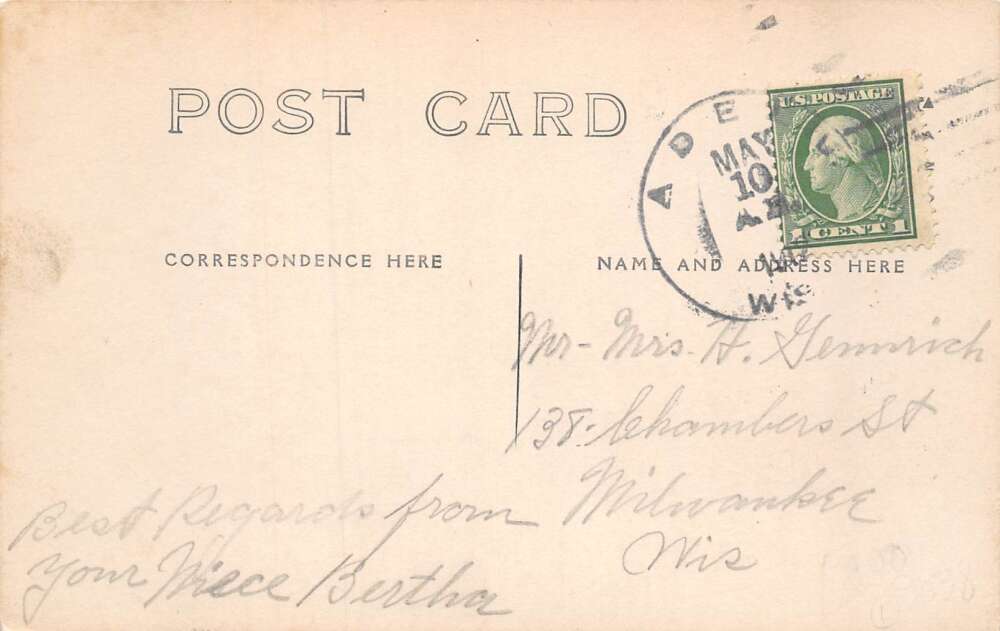 POST CARD
ADE
MAY
10
A.M.
WIS
U.S. POSTAGE
1 CENT 1
CORRESPONDENCE HERE
NAME AND ADDRESS HERE
Mr - Mrs. H. Gennrich
138. Chambers St
Milwaukee
Wis
Best Regards from
Your Niece Bertha